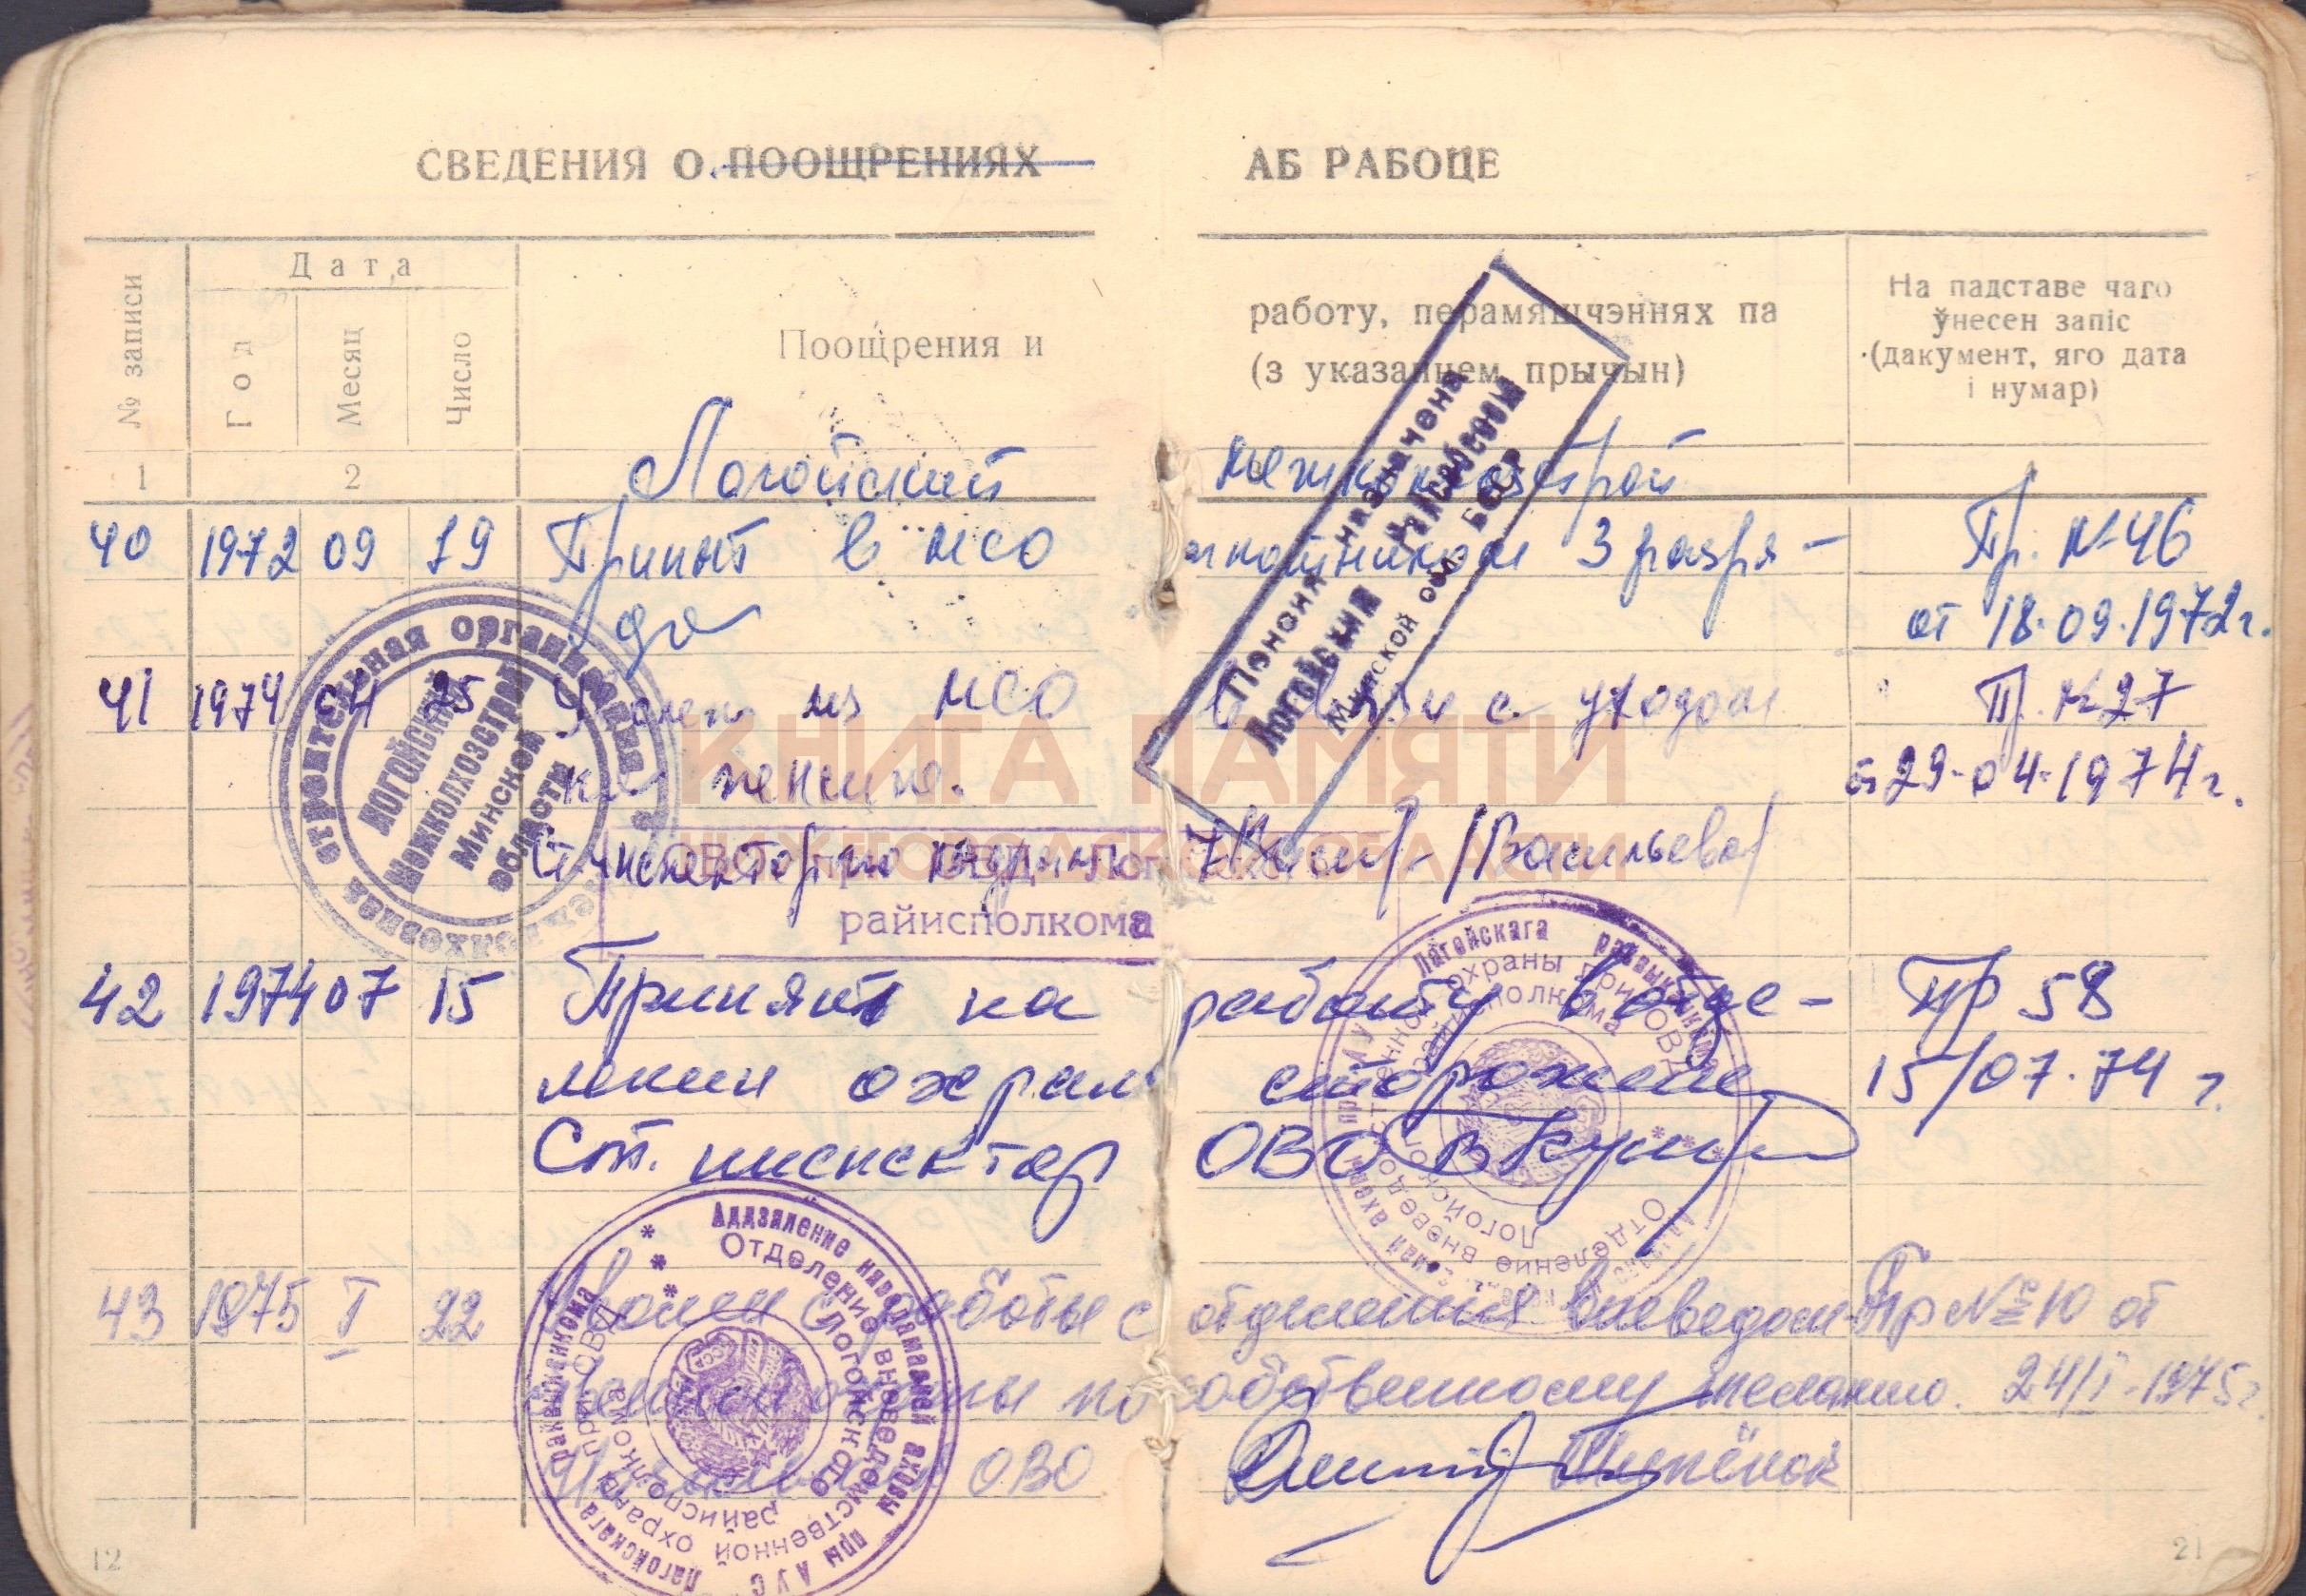 СВЕДЕНИЯ О ПООЩРЕНИЯХ
АБ РАБОЦЕ
№ записи
Дата
Год
Месяц
Число
Поощрения и
работу, перамяшчэннях па
(з указаннем прычын)
На падставе чаго
ўнесен запіс
(дакумент, яго дата
і нумар)
1 2
Логойский межколхозстрой
40 1972 09 19 Принят в МСО 3 разря- Пр. № 46
да от 18.09.1972г.
41 1974 04 25 из МСО в связи с уходом Пр. № 27
на пенсию. от 29-04-1974г.
Ст. инспектор по кадрам /Васильева/
Пенсия назначена
Логойский
Минской обл. БССР
строительная организация
ЛОГОЙСКИЙ
Межколхозстрой
Минской
области
КНИГА ПАМЯТИ
НИЖЕГОРОДСКОЙ ОБЛАСТИ
ОВО при ОВД Лог
райисполкома
42 1974 07 15 Принят на работу в отде- Пр 58
лении охраны сторожем 15/07.74 г.
Ст. инспектор ОВО
Лагойскага райвыканкома
охраны при ОВД
райисполкома
Отделение вневедомственной
Логойского
43 1975 I 22 Уволен с работы с отделения вневедом- Пр № 10 от
ственной охраны по собственному желанию. 24/I-1975г.
Начальник ОВО
Аддзяленне наведамнай аховы пры АУС
Лагойскага райвыканкома
Отделение вневедомственной охраны при ОВД
Логойского райисполкома
12
21